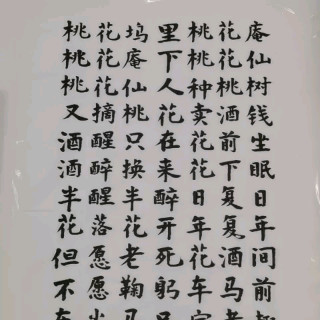 桃花坞里桃花庵
桃花庵下桃花仙
桃花仙人种桃树
又摘桃花卖酒钱
酒醒只在花前坐
酒醉换来花下眠
半醒半醉日复日
花落花开年复年
但愿老死花酒间
不愿鞠躬车马前